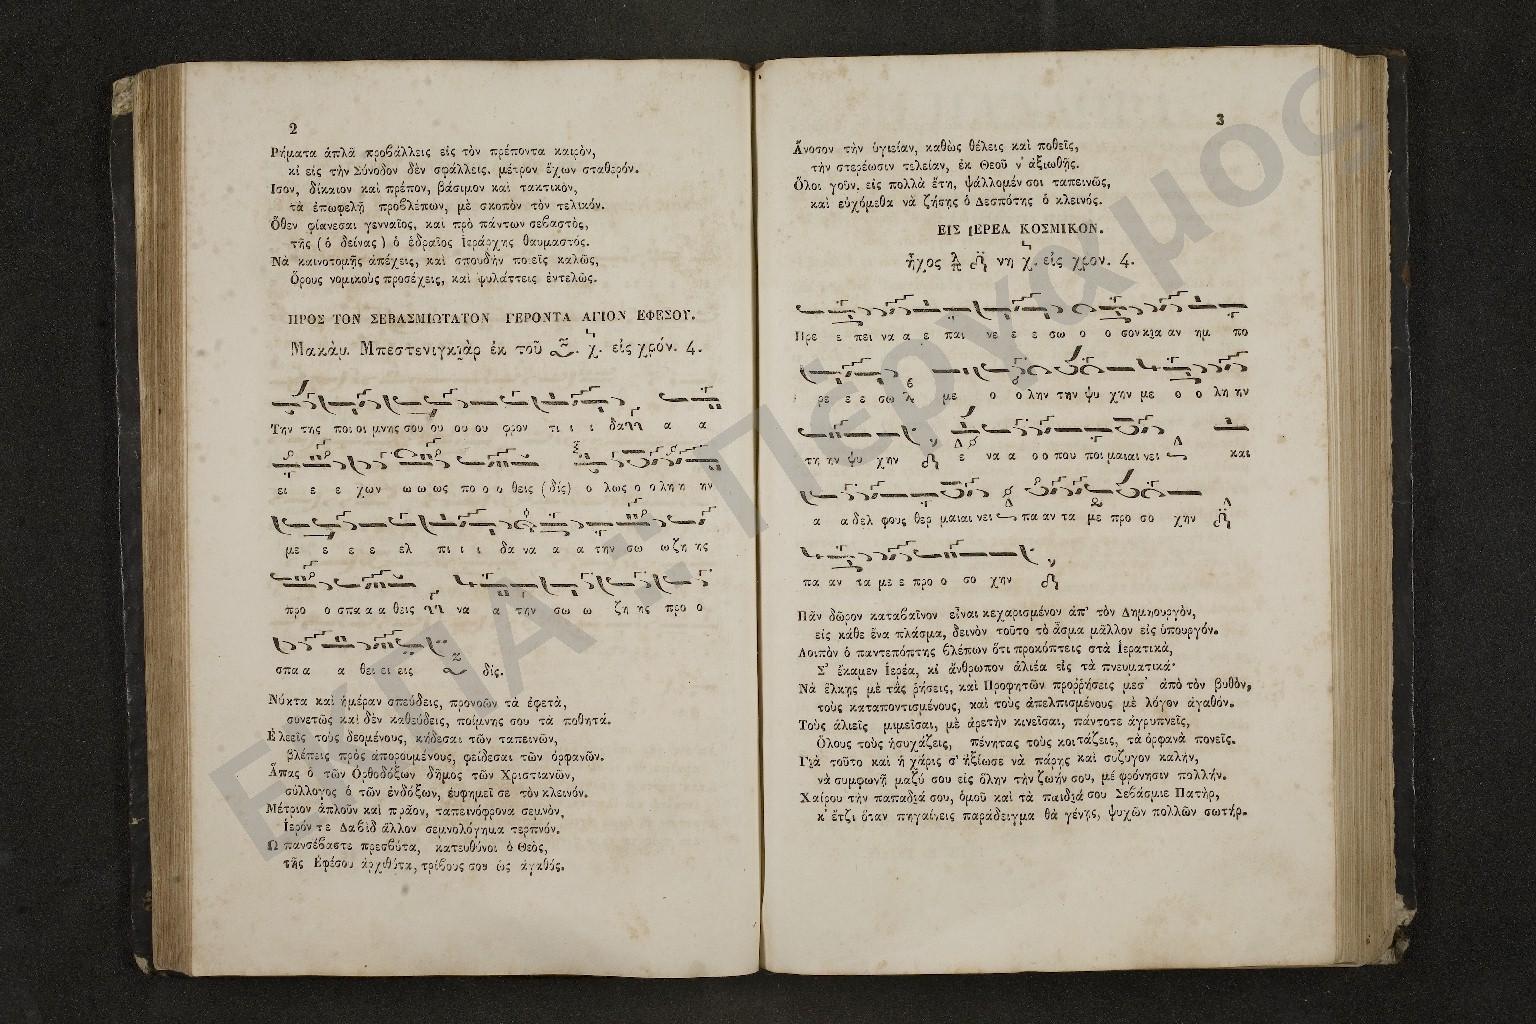 2
Ρήματα ἁπλᾶ προβάλλεις εἰς τὸν πρέποντα καιρὸν,
κἰ εἰς τὴν Σύνοδον δὲν σφάλλεις. μέτρον ἔχων σταθερόν.
Ισον, δίκαιον καὶ πρέπον, βάσιμον καὶ τακτικὸν,
τὰ ἐπωφελῆ προβλέπων, μὲ σκοπὸν τὸν τελικόν.
Ὅθεν φίανεσαι γενναῖος, καὶ πρὸ πάντων σεβαστὸς,
τῆς (ὁ δείνας) ὁ ἑδραῖος Ἱεράρχης θαυμαστός.
Νὰ καινοτομῇς ἀπέχεις, καὶ σπουδὴν ποιεῖς καλῶς,
Ὅρους νομικοὺς προσέχεις, καὶ φυλάττεις ἐντελῶς.
ΠΡΟΣ ΤΟΝ ΣΕΒΑΣΜΙΩΤΑΤΟΝ ΓΕΡΟΝΤΑ ΑΓΙΟΝ ΕΦΕΣΟΥ.
Μακὰμ Μπεστενιγκιὰρ ἐκ τοῦ χ. εἰς χρόν. 4.
Την της ποι οι μνης σου ου ου ου φρον τι ι ι δα α α
ει ε ε χων ω ω ως πο ο ο θεις (δίς) ο λως ο ο λη η ην
με ε ε ε ελ πι ι ι δα να α α την σω ω ζη ης
προ ο σπα α α θεις να α την σω ω ζη ης προ ο
σπα α α θει ει εις δίς.
Νύκτα καὶ ἡμέραν σπεύδεις, προνοῶν τὰ ἐφετὰ,
συνετῶς καὶ δὲν καθεύδεις, ποίμνης σου τὰ ποθητά.
Ἐλεεῖς τοὺς δεομένους, κήδεσαι τῶν ταπεινῶν,
βλέπεις πρὸς ἀπορουμένους, φείδεσαι τῶν ὀρφανῶν.
Ἅπας ὁ τῶν Ὀρθοδόξων δῆμος τῶν Χριστιανῶν,
σύλλογος ὁ τῶν ἐνδόξων, ευφημεῖ σε τὸν κλεινόν.
Μέτριον ἁπλοῦν καὶ πρᾶον, ταπεινόφρονα σεμνὸν,
Ἱερόν τε Δαβὶδ ἄλλον σεμνολόγημα τερπνόν.
Ω πανσέβαστε πρεσβύτα, κατευθύνοι ὁ Θεὸς,
τῆς Ἐφέσου ἀρχιθύτα, τρίβους σου ὡς ἀγαθός.
3
Ἄνοσον τὴν ὑγιείαν, καθὼς θέλεις καὶ ποθεῖς,
τὴν στερέωσιν τελείαν, ἐκ Θεοῦ ν' ἀξιωθῇς.
Ὅλοι γοῦν. εἰς πολλὰ ἔτη, ψάλλομέν σοι ταπεινῶς,
καὶ εὐχόμεθα νὰ ζήσῃς ὁ Δεσπότης ὁ κλεινός.
ΕΙΣ ΙΕΡΕΑ ΚΟΣΜΙΚΟΝ.
ἦχος νη χ. εἰς χρον. 4.
Πρε ε πει να α ε παι νε ε ε σω ο ο σον κια αν ημ πο
ρε ε ε σω με ο ο λην την ψυ χην με ο ο λη ην
τη ην ψυ χην ε να α ο ο που ποι μαιαι νει και
α α δελ φους θερ μαιαι νει πα αν τα με προ σο χην
πα αν τα με ε προ ο σο χην
Πᾶν δῶρον καταβαῖνον εἶναι κεχαρισμένον ἀπ' τὸν Δημιουργὸν,
εἰς κάθε ἕνα πλάσμα, δεινὸν τοῦτο τὸ ᾆσμα μᾶλλον εἰς ὑπουργόν.
Λοιπὸν ὁ παντεπόπτης βλέπων ὅτι προκόπτεις στὰ Ἱερατικὰ,
Σ' ἔκαμεν Ἱερέα, κἰ ἄνθρωπον ἁλιέα εἰς τὰ πνευματικά·
Νὰ ἕλκῃς μὲ τὰς ῥήσεις, καὶ Προφητῶν προῤῥήσεις μεσ' ἀπὸ τὸν βυθὸν,
τοὺς καταποντισμένους, καὶ τοὺς ἀπελπισμένους μὲ λόγον ἀγαθόν.
Τοὺς ἁλιεῖς μιμεῖσαι, μὲ ἀρετὴν κινεῖσαι, πάντοτε ἀγρυπνεῖς,
Ὅλους τοὺς ἡσυχάζεις, πένητας τοὺς κοιτάζεις, τὰ ὀρφανὰ πονεῖς.
Γιὰ τοῦτο καὶ ἡ χάρις σ' ἠξίωσε νὰ πάρῃς καὶ συζυγον καλὴν,
νὰ συμφωνῇ μαζύ σου εἰς ὅλην τὴν ζωήν σου, μὲ φρόνησιν πολλήν.
Χαίρου τὴν παπαδιά σου, ὁμοῦ καὶ τὰ παιδιά σου Σεβάσμιε Πατὴρ,
κ' ἔτζι ὅταν πηγαίνεις παράδειγμα θὰ γένῃς, ψυχῶν πολλῶν σωτήρ.